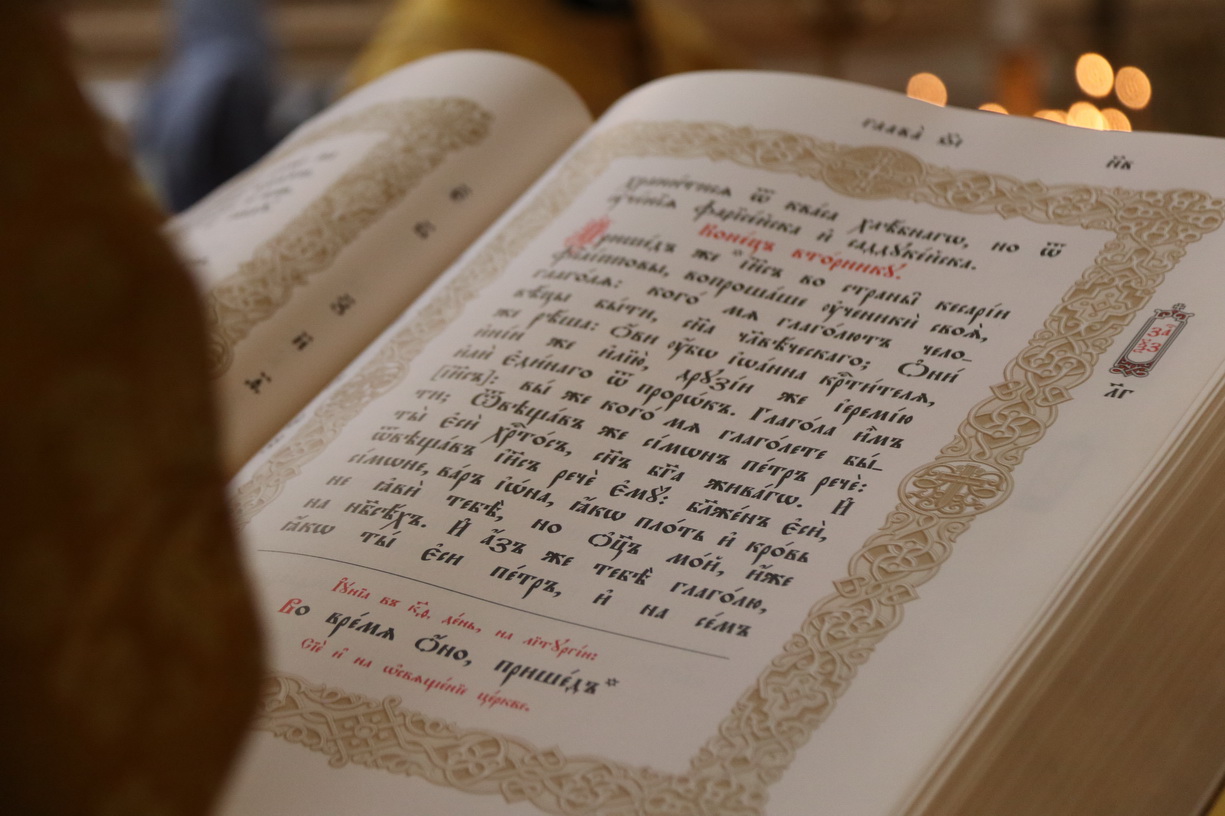 глава̀ ѕ҃і
н҃в
храни́тисѧ ѿ ква́са хлѣ́бнагѡ, но ѿ
ᲂу҆че́нїѧ фарїсе́йска и҆ саддꙋке́йска.
Коне́цъ вто́рникꙋ.
Прише́дъ же * і҆и҃съ во страны̑ кесарі́и
фїлі́пповы, вопроша́ше ᲂу҆ченикѝ своѧ̑,
глаго́лѧ: кого́ мѧ глаго́лютъ чело-
вѣ́цы бы́ти, сн҃а чл҃вѣ́ческаго; Ѻ҆ни́
же рѣ́ша: Ѻ҆́ви ᲂу҆́бѡ і҆ѡа́нна крⷭ҇ти́телѧ,
и҆ні́и же и҆лїю̀, дрꙋзі́и же і҆еремі́ю
и҆лѝ є҆ди́наго ѿ прорѡ́къ. Глаго́ла и҆̀мъ
[і҆и҃съ]: вы́ же кого́ мѧ глаго́лете бы́-
ти; Ѿвѣща́въ же сі́мѡнъ пе́тръ речѐ:
ты̀ є҆сѝ хрⷭ҇то́съ, сн҃ъ бг҃а жива́гѡ. И҆
ѿвѣща́въ і҆и҃съ речѐ є҆мꙋ̀: бл҃же́нъ є҆сѝ,
сі́мѡне, ва́ръ і҆ѡ́на, ꙗ҆́кѡ пло́ть и҆ кро́вь
не ꙗ҆вѝ тебѣ̀, но ѻ҆ц҃ъ мо́й, и҆́же
на нб҃сѣ́хъ. И҆ а҆́зъ же тебѣ̀ глаго́лю,
ꙗ҆́кѡ ты̀ є҆сѝ пе́тръ, и҆ на се́мъ
за҃
ѯ҃з
л҃г
І҆ꙋ́нїа въ к҃ѳ. де́нь, на лїтꙋргі́и:
Во вре́мѧ ѻ҆́но, прише́дъ *
Сїѐ и҆ на ѡ҆свѧще́нїе це́ркве.